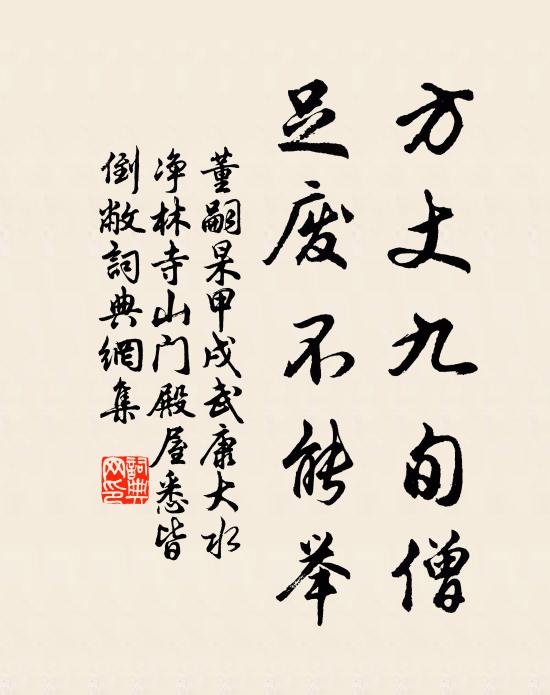 方丈九旬僧
足废不能举
董嗣杲甲戌武康大水
净林寺山门殿屋悉皆
倒敝詞典網集
詞典网印